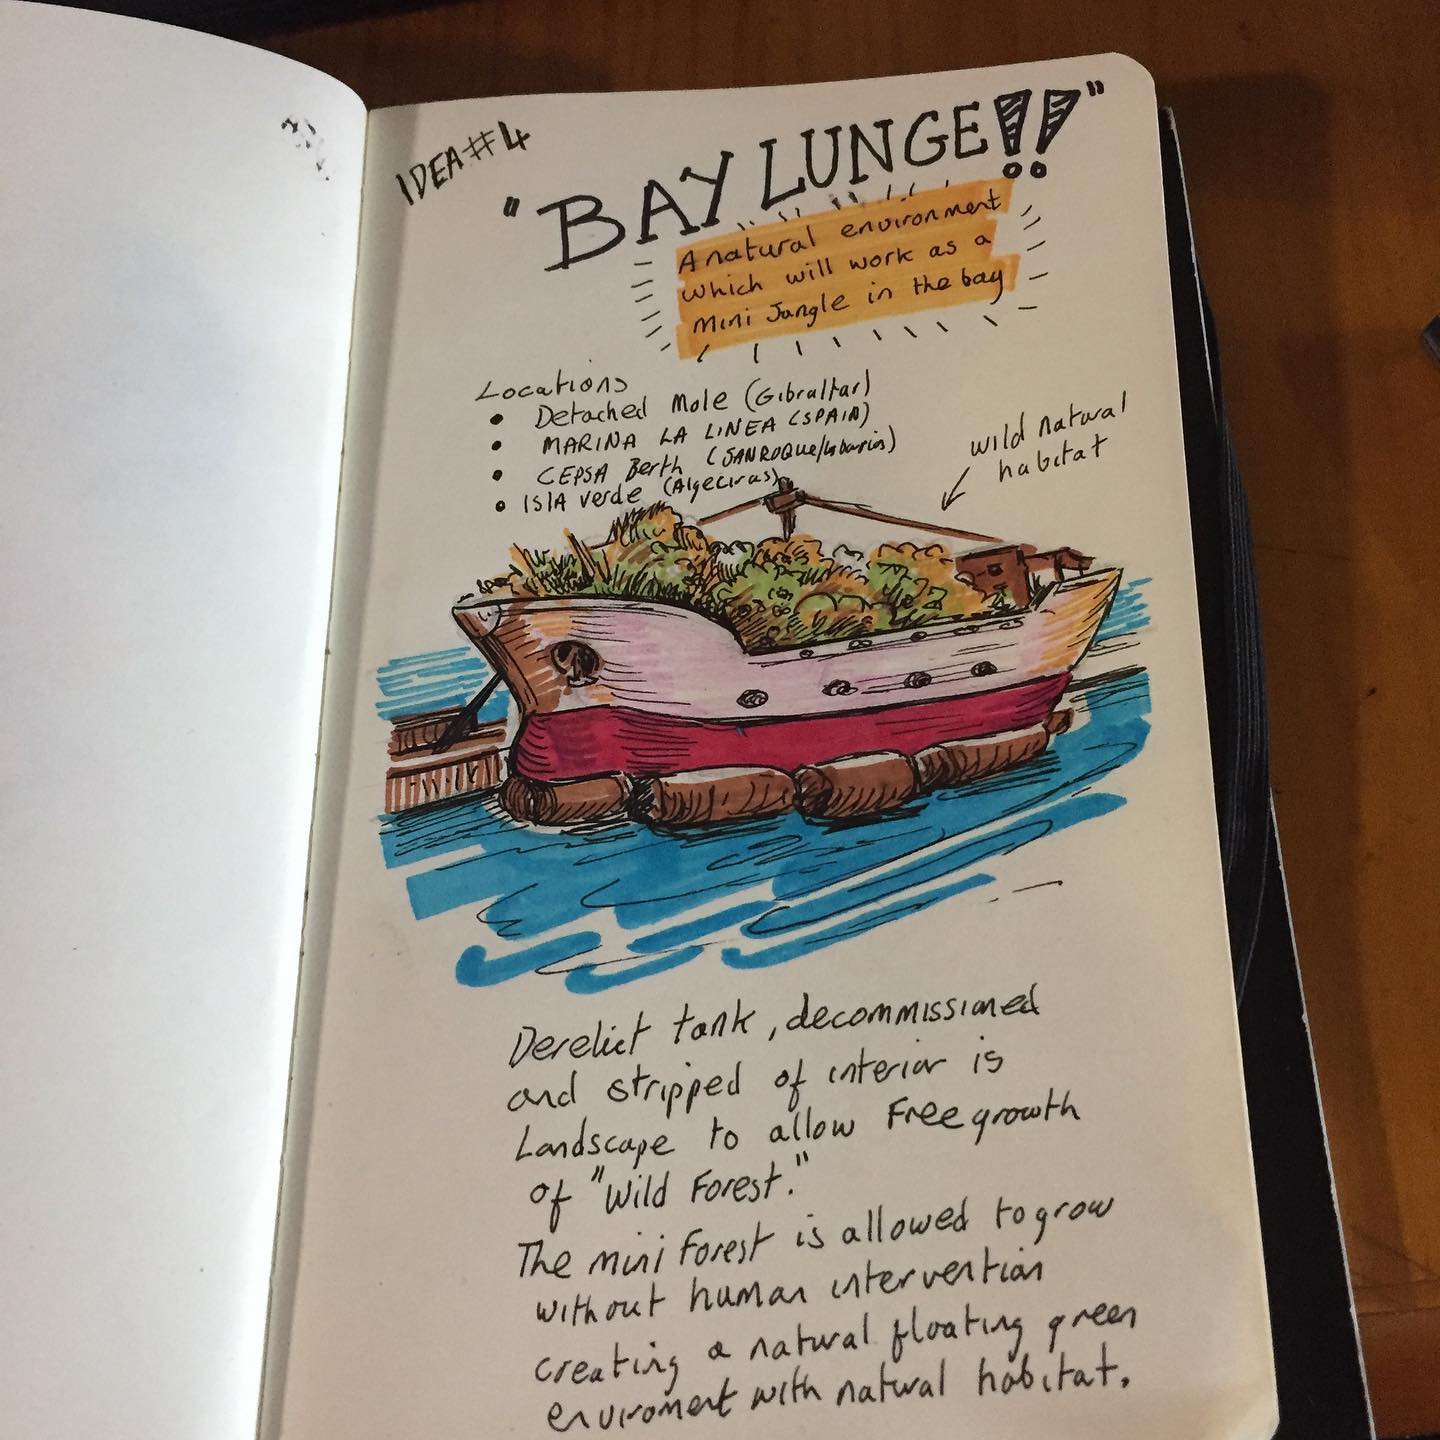 IDEA #4
"BAY LUNGE!!"
A natural environment
which will work as a
mini Jungle in the bay
Locations
• Detached Mole (Gibraltar)
• MARINA LA LINEA (SPAIN)
• CEPSA Berth (SANROQUE/
• ISLA verde (Algeciras)
wild natural
habitat
Derelict tank, decommissioned
and stripped of interior is
Landscape to allow Free growth
of "Wild Forest."
The mini Forest is allowed to grow
without human intervention
creating a natural floating green
enviroment with natural habitat.